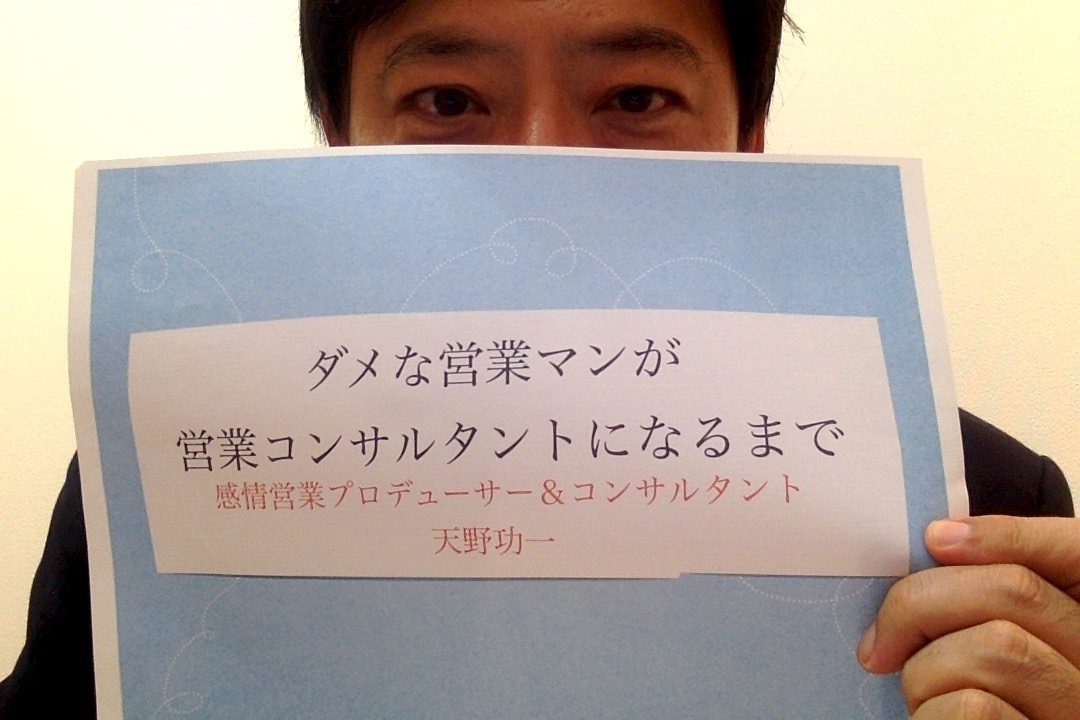 ダメな営業マンが
営業コンサルタントになるまで
感情営業プロデューサー＆コンサルタント
天野功一